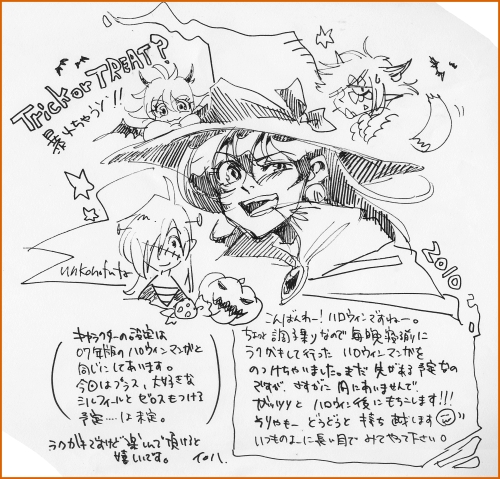 Trick or TREAT?
暴れちゃうゾ!!
unkohofuta
2010
こんばんわー!ハロウィンですねー。
ちょっと調子乗りなので毎晩寝る前に
ラクガキして行った ハロウィンマンガを
のっけちゃいました。まだ 先がある予定なの
ですが、さすがに 間にあいませんで
ガッツリと ハロウィン後にもちこします!!!
もうやもー どうどうと 持ち 越します
いつものよーに長い目で みてやって下さい。
キャラクターの設定は
07年版の ハロウィンマンガと
同じにしてあります。
今回はプラス、大好きな
ミルフィールと ゼロスもつける
予定……は 未定。
ラクガキですけど 楽しんで頂けると
嬉しいです。